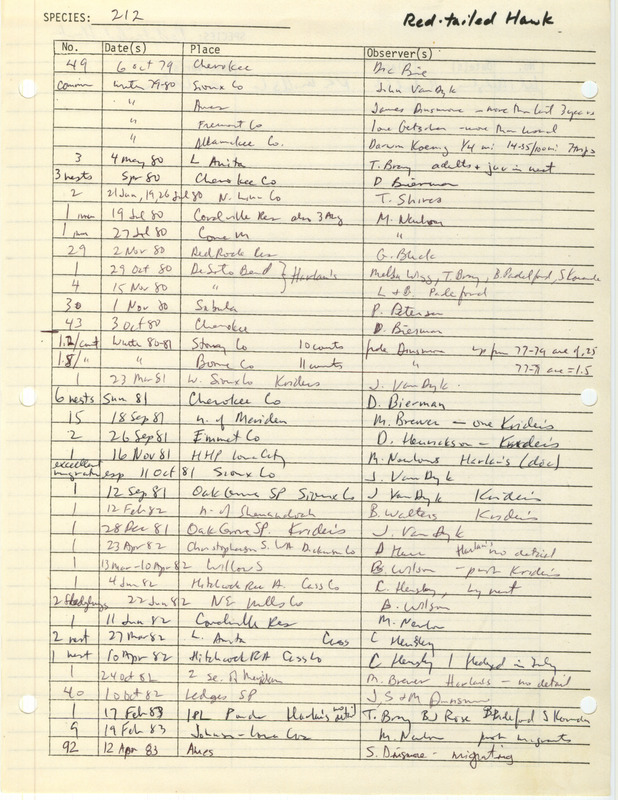 SPECIES: 212 Red-tailed Hawk
No. Date(s) Place Observer(s)
49 6 Oct 79 Cherokee Dic Bie
common winter 79-80 Sioux Co John Van Dyk
" Ames James Dinsmore - more than last 3 years
" Fremont Co - more than usual
" Allamakee Co. Darwin Koenig 1/4 mi
3 4 May 80 L Anita T. Bray adults + juv in nest
3 nests Spr 80 Cherokee Co D Bierman
2 21 Jun, 19, 26 Jul 80 N. Linn Co T. Shires
1 imm 19 Jul 80 Coralville Res also 3 Aug M. Newlon
1 imm 27 Jul 80 Cone M "
29 2 Nov 80 Red Rock Res G. Black
1 29 Oct 80 DeSoto Bend } Harlan's T. Bray, B. Padelford,
4 15 Nov 80 " L + B. Padelford
30 1 Nov 80 Sabula P. Petersen
43 3 Oct 80 Cherokee D. Bierman
1.2/count winter 80-81 Story Co 10 counts Dinsmore up from 77-79 ave of .25
1.8/" " Boone Co 11 counts " 77-79 ave = 1.5
1 23 Mar 81 W. Sioux Co Kriders J. Van Dyk
6 nests Sum 81 Cherokee Co D. Bierman
15 18 Sep 81 n. of Meriden M. Brewer - one Krider's
2 26 Sep 81 Emmet Co D. Henrickson - Krider's
1 16 Nov 81 HHP Iowa City M. Newlons Harlan's (doc)
excellent migration esp 11 Oct 81 Sioux Co J. Van Dyk
1 12 Sep 81 Oak Grove SP Sioux Co J Van Dyk Kriders
1 12 Feb 82 n. of Shenandoah B. Walters Kriders
1 28 Dec 81 Oak Grove SP. Krider's J. Van Dyk
1 23 Apr 82 Christopherson S. WA Dickinson Co D Harr Harlan's no detail
1 13 Mar-10 Apr 82 Willow S B. Wilson - Krider's
1 4 Jun 82 Hitchcock Rec A. Cass Co C. Hensley, nest
2 fledglings 22 Jun 82 NE Mills Co B. Wilson
1 11 Jun 82 Coralville Res M. Newlon
2 nest 27 Mar 82 L. Anita Cass C Hensley
1 nest 10 Apr 82 Hitchcock RA Cass Co C Hensley 1 fledged in July
1 24 Oct 82 2 se. of M. Brewer Harlan's - no detail
40 10 Oct 82 Ledges SP J, S + M Dinsmore
1 17 Feb 83 IPL Ponds Harlan's no detail T. Bray BJ Rose B Padelford S
9 19 Feb 83 Johnson-Iowa Cos M. Newlon migrants
92 12 Apr 83 Ames S. Dinsmore - migrating